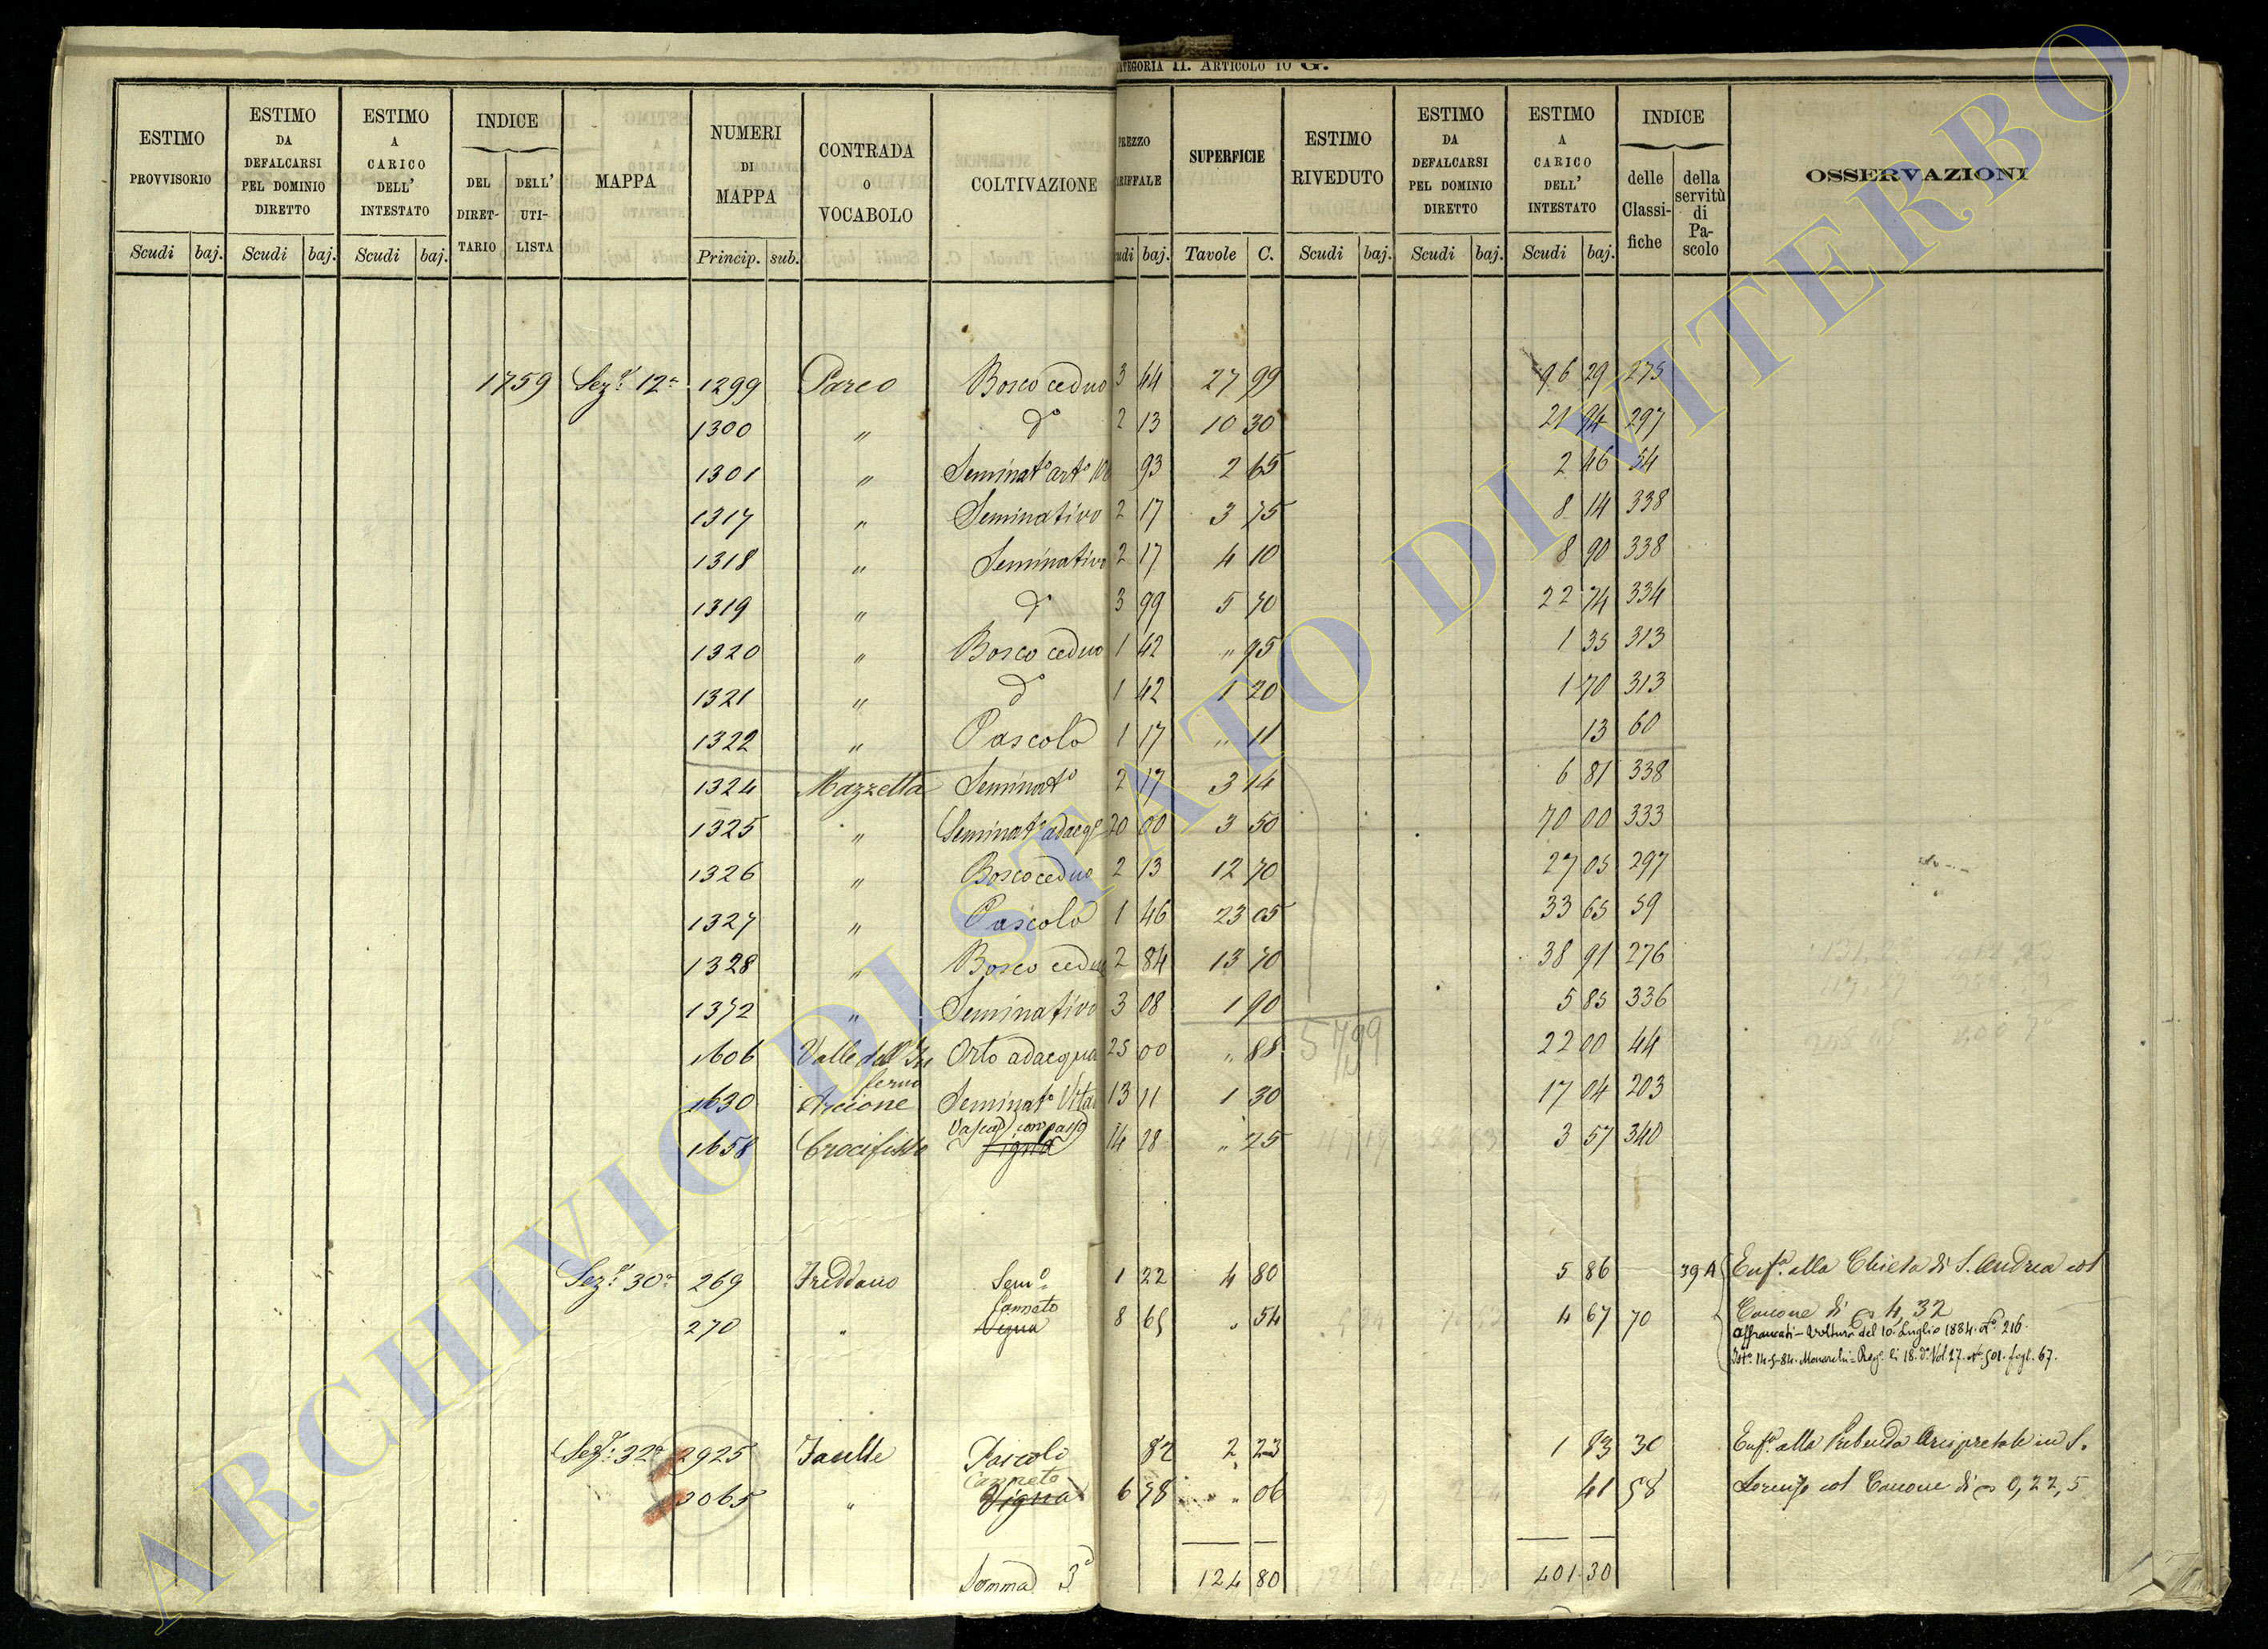 CATEGORIA II. ARTICOLO 10 G.
ESTIMO PROVVISORIO Scudi baj.
ESTIMO DA DEFALCARSI PEL DOMINIO DIRETTO Scudi baj.
ESTIMO A CARICO DELL' INTESTATO Scudi baj.
INDICE DEL DIRETTARIO DELL' UTILISTA
MAPPA
NUMERI DI MAPPA Princip. sub.
CONTRADA O VOCABOLO
COLTIVAZIONE
PREZZO TARIFFALE Scudi baj.
SUPERFICIE Tavole C.
ESTIMO RIVEDUTO Scudi baj.
ESTIMO DA DEFALCARSI PEL DOMINIO DIRETTO Scudi baj.
ESTIMO A CARICO DELL' INTESTATO Scudi baj.
INDICE delle Classifiche della servitù di Pascolo
OSSERVAZIONI
1759 Sez.e 12a 1299 Parco Bosco ceduo 3 44 27 99 96 29 275
1300 " do 2 13 10 30 21 94 297
1301 " Seminato arto 93 2 65 2 46 54
1317 " Seminativo 2 17 3 75 8 14 338
1318 " Seminativo 2 17 4 10 8 90 338
1319 " do 3 99 5 70 22 74 334
1320 " Bosco ceduo 1 42 " 95 1 35 313
1321 " do 1 42 1 20 1 70 313
1322 " Pascolo 1 17 " 11 13 60
1324 Mazzetta Seminato 2 17 3 14 6 81 338
1325 " Seminato adacqo 20 00 3 50 70 00 333
1326 " Bosco ceduo 2 13 12 70 27 05 297
1327 " Pascolo 1 46 23 05 33 65 59
1328 " Bosco ceduo 2 84 13 70 38 91 276
1372 " Seminativo 3 08 1 90 5 85 336
1606 Valle dell'Inferno Orto adacqua 25 00 " 88 22 00 44
1630 Arcione Seminato Vitato 13 11 1 30 17 04 203
1658 Crocifisso Vigna 14 28 " 25 3 57 340
Sez.e 30a 269 Freddano Semo 1 22 4 80 5 86 39 A Enfa alla Chiesa di S. Andrea col
270 " Canneto Vigna 8 65 " 54 4 67 70 Canone di 4,32
affrancati - Voltura del 10. Luglio 1884. No 216.
Isto 14-5-84. Monarchi = Rego li 18. do Vol. 17. No 501. fogl. 67.
Sez.e 32a 2925 Faulle Pascolo 82 2 23 1 83 30 Enfa alla Prebenda Arcipretale in S.
3065 " Canneto Vigna 6 78 " 06 41 58 Lorenzo col Canone di 0,22,5
Somma 3a 124 80 401 30
ARCHIVIO DI STATO DI VITERBO